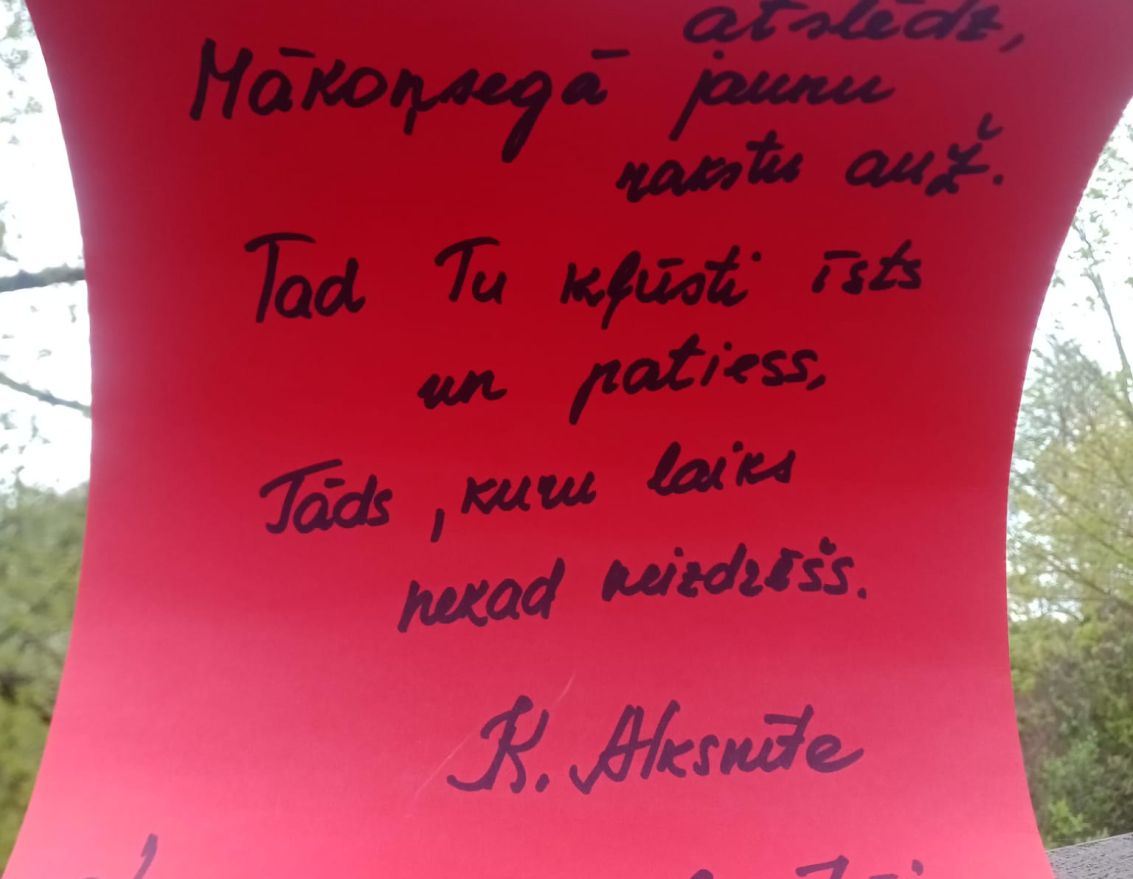 atslēdz,
Mākoņsegā jaunu
rakstu auž.
Tad Tu kļūsti īsts
un patiess,
Tāds, kuru laiks
nekad neizdzēsīs.
K. Alksnīte